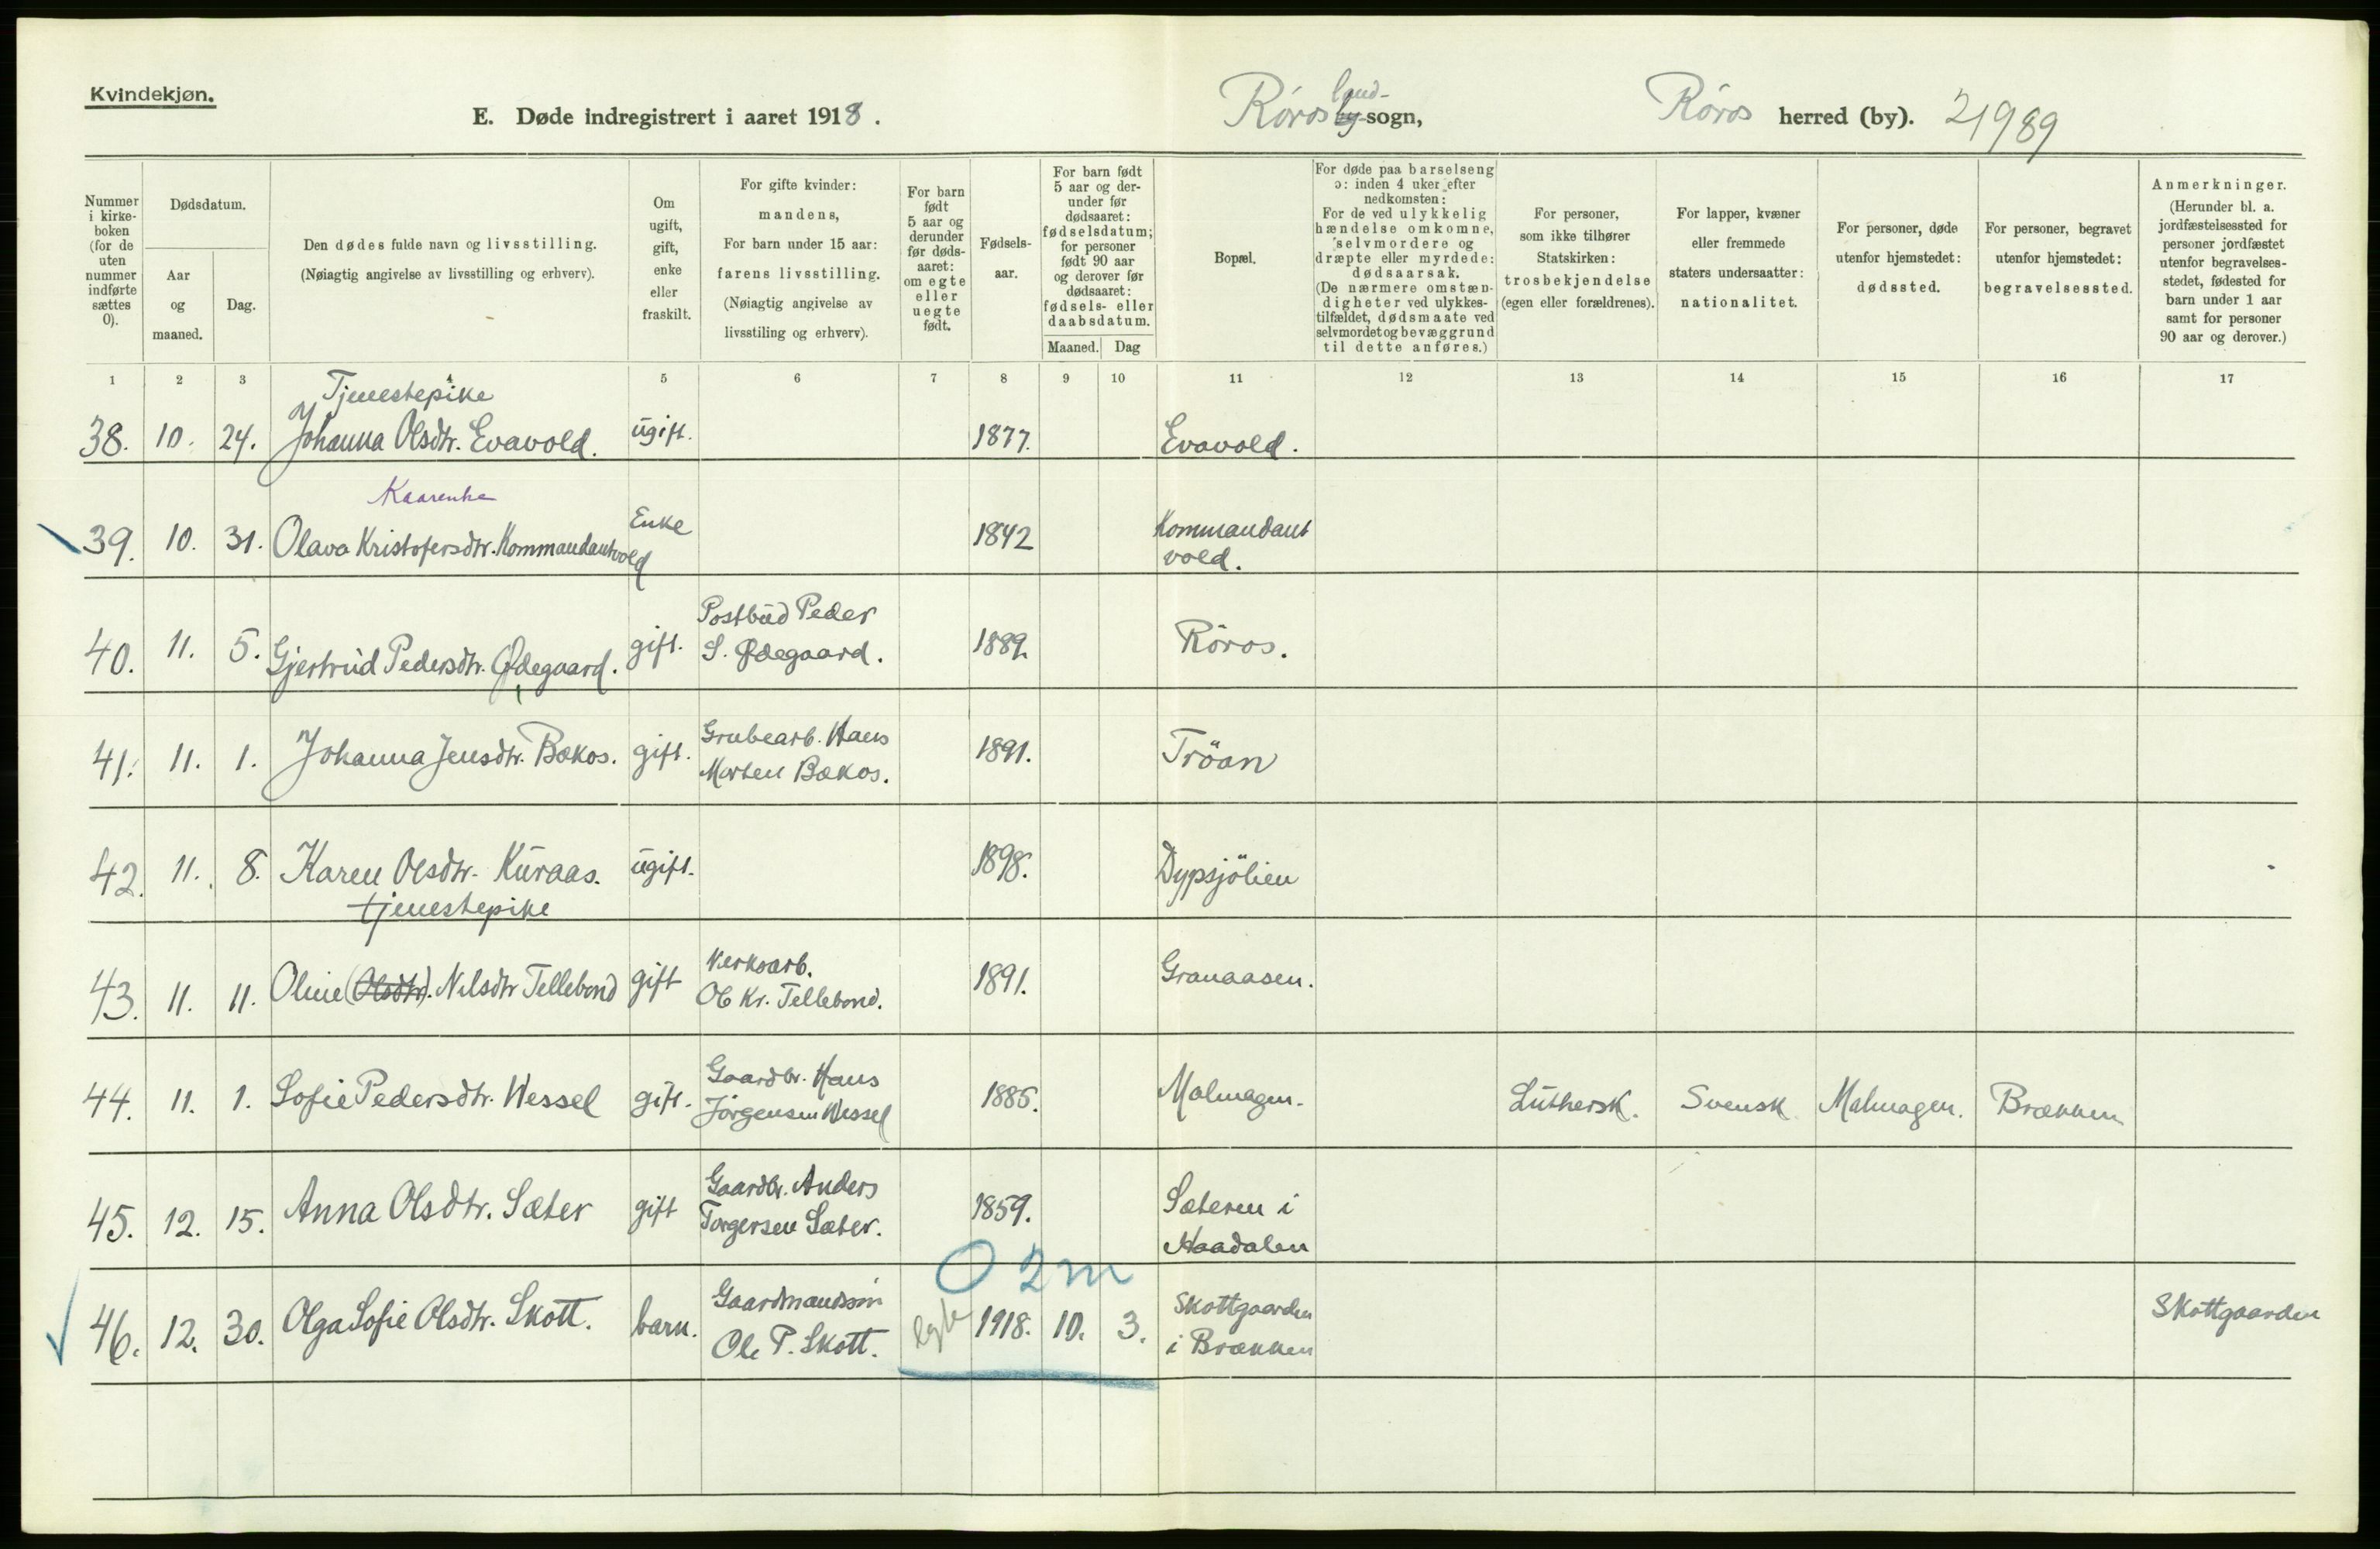 Kvindekjøn.
E. Døde indregistrert i aaret 1918.
Röros land- by-sogn,
Röros herred (by). 21989
Nummer i kirke-boken (for de uten nummer indførte sættes 0).
Dødsdatum.
Aar og maaned.
Dag.
Den dødes fulde navn og livsstilling.
(Nøiagtig angivelse av livsstilling og erhverv).
Om ugift, gift, enke eller fraskilt.
For gifte kvinder: mandens,
For barn under 15 aar: farens livsstilling.
(Nøiagtig angivelse av livsstiling og erhverv).
For barn født 5 aar og derunder før døds-aaret: om egte eller uegte født.
Fødsels-aar.
For barn født 5 aar og der-under før dødsaaret: fødselsdatum; for personer født 90 aar og derover før dødsaaret: fødsels- eller daabsdatum.
Maaned. Dag
Bopæl.
For døde paa barselseng ɔ: inden 4 uker efter nedkomsten:
For de ved ulykkelig hændelse omkomne, selvmordere og dræpte eller myrdede: dødsaarsak.
(De nærmere omstæn-digheter ved ulykkes-tilfældet, dødsmaate ved selvmordet og bevæggrund til dette anføres.)
For personer, som ikke tilhører Statskirken: trosbekjendelse (egen eller forældrenes).
For lapper, kvæner eller fremmede staters undersaatter: nationalitet.
For personer, døde utenfor hjemstedet: dødssted.
For personer, begravet utenfor hjemstedet: begravelsessted.
Anmerkninger.
(Herunder bl. a. jordfæstelsessted for personer jordfæstet utenfor begravelses-stedet, fødested for barn under 1 aar samt for personer 90 aar og derover.)
1 2 3 4 5 6 7 8 9 10 11 12 13 14 15 16 17
Tjenestepike
38. 10. 24. Johanna Olsdtr. Evavold. ugift. 1877. Evavold.
39. 10. 31. Olava Kristofersdtr. Kommandantvold Enke 1842 Kommandant
vold.
40. 11. 5. Gjertrud Pedersdtr. Ødegaard. gift. Postbud Peder
S. Ødegaard. 1889. Röros.
41. 11. 1. Johanna Jensdtr. Bakos. gift. Grubearb. Hans
Morten Bakos. 1891. Tröan
42. 11. 8. Karen Olsdtr. Kuraas. ugift. 1898. Dypsjölien
tjenestepike
43. 11. 11. Oline (Olsdtr). Nilsdtr Tellebond gift Verksarb.
Ole Kr. Tellebond. 1891. Granaasen.
44. 11. 1. Sofie Pedersdtr. Wessel gift. Gaardbr. Hans
Jörgensen Wessel 1885. Malmagen. Luthersk. Svensk Malmagen. Brækken
45. 12. 15. Anna Olsdtr. Sæter gift Gaardbr. Anders
Torgersen Sæter. 1859. Sæteren i
Haadalen
0 2m
46. 12. 30. Olga Sofie Olsdtr. Skott. barn. Gaardmandssön
Ole P. Skott. egte 1918. 10. 3. Skottgaarden
i Brækken Skottgaarden